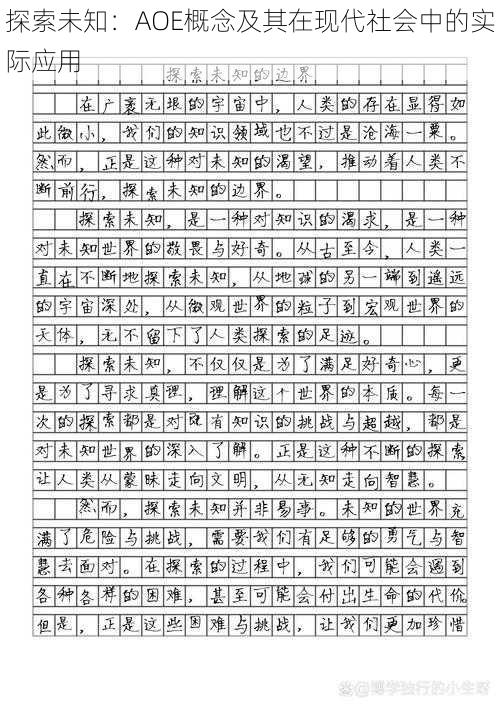 探索未知：AOE概念及其在现代社会中的实
际应用
探索未知的边界
在广袤无垠的宇宙中，人类的存在显得如
此微小，我们的知识领域也不过是沧海一粟。
然而，正是这种对未知的渴望，推动着人类不
断前行，探索未知的边界。
探索未知，是一种对知识的渴求，是一种
对未知世界的敬畏与好奇。从古至今，人类一
直在不断地探索未知，从地球的另一端到遥远
的宇宙深处，从微观世界的粒子到宏观世界的
天体，无不留下了人类探索的足迹。
探索未知，不仅仅是为了满足好奇心，更
是为了寻求真理，理解这个世界的本质。每一
次的探索都是对既有知识的挑战与超越，都是
对未知世界的深入了解。正是这种不断的探索
让人类从蒙昧走向文明，从无知走向智慧。
然而，探索未知并非易事。未知的世界充
满了危险与挑战，需要我们有足够的勇气与智
慧去面对。在探索的过程中，我们可能会遇到
各种各样的困难，甚至可能会付出生命的代价。
但是，正是这些困难与挑战，让我们更加珍惜
知乎 @博学独行的小生呀